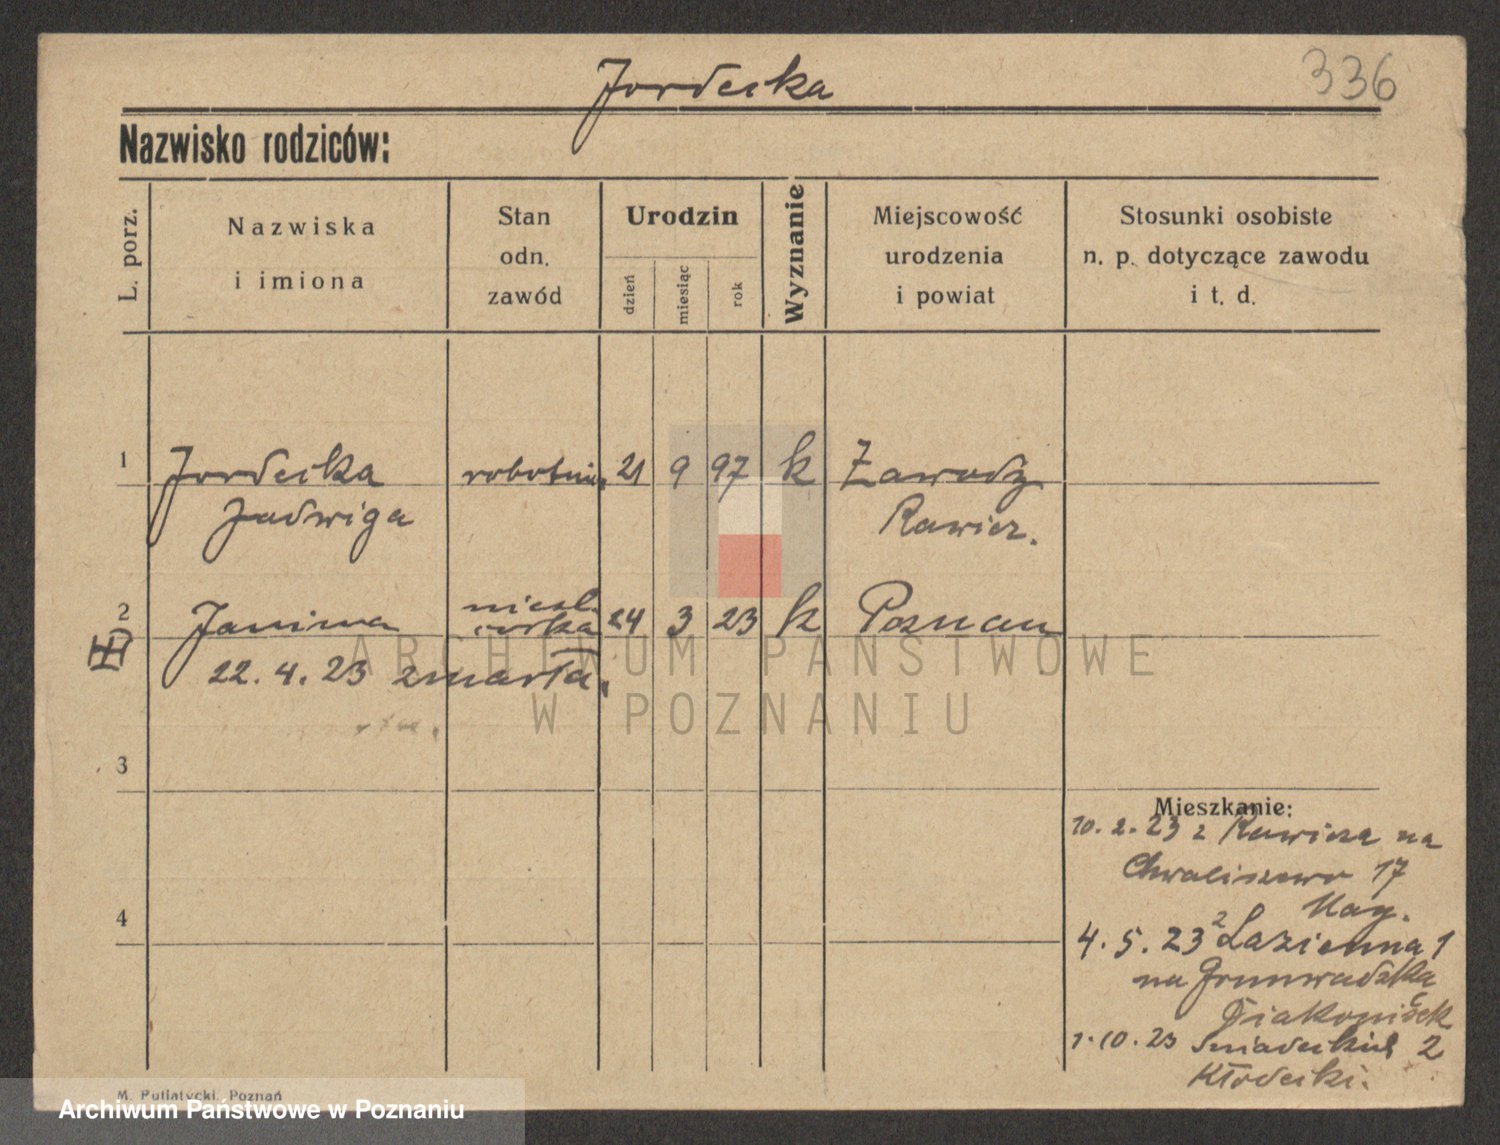 Jordecka
336
Nazwisko rodziców:
L. porz.
Nazwiska
i imiona
Stan
odn.
zawód
Urodzin
dzień
miesiąc
rok
Wyznanie
Miejscowość
urodzenia
i powiat
Stosunki osobiste
n. p. dotyczące zawodu
i t. d.
1 Jordecka robotni. 21 9 97 k Zawody
Jadwiga Rawicz.
2 Janina 24 3 23 k Poznan
22.4.23 zmarła.
3
4
Mieszkanie:
10.2.23 z Rawicza na
Chwaliszewo 17
4.5.23 z Lazienna 1
na Grunwadzka
1.10.23 Sniadeckich 2
Kłodecki.
ARCHIWUM PAŃSTWOWE
W POZNANIU
M. Putiatycki, Poznań
Archiwum Państwowe w Poznaniu